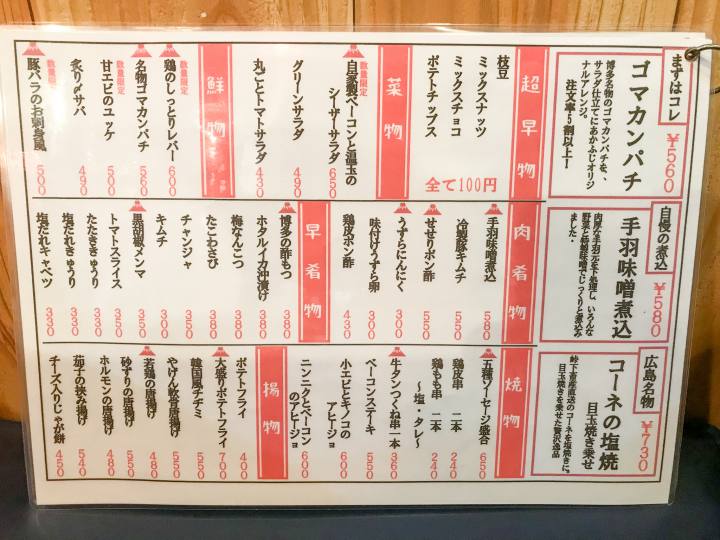 まずはコレ
¥560
ゴマカンパチ
博多名物のゴマカンパチを、
サラダ仕立てにあかふじオリジ
ナルアレンジ。
注文率5割以上！
超早物
枝豆
ミックスナッツ
ミックスチョコ
ポテトチップス
全て100円
菜物
数量限定
自家製ベーコンと温玉の
シーザーサラダ
650
グリーンサラダ
490
丸ごとトマトサラダ
430
鮮物
数量限定
鶏のしっとりレバー
600
名物ゴマカンパチ
560
数量限定
甘エビのユッケ
500
炙り〆サバ
490
数量限定
豚バラのお刺身風
500
自慢の煮込
¥580
手羽味噌煮込
肉厚な手羽元を下処理し、いろんな
野菜と秘製味噌でじっくりと煮込み
ました。
肉肴物
手羽味噌煮込
580
冷製豚キムチ
550
せせりポン酢
550
うずらにんにく
300
味付けうずら卵
300
鶏皮ポン酢
430
早肴物
博多の酢もつ
380
ホタルイカ沖漬け
380
梅なんこつ
380
たこわさび
380
チャンジャ
350
キムチ
350
黒胡椒メンマ
350
トマトスライス
350
たたききゅうり
330
塩だれきゅうり
330
塩だれキャベツ
330
広島名物
¥730
コーネの塩焼
目玉焼き乗せ
峠下畜産直送のコーネを塩焼きに。
目玉焼きを乗せた贅沢逸品
焼物
五種ソーセージ盛合
650
鶏皮串 二本
240
鶏もも串 二本
240
～塩・タレ～
牛タンつくね串二本
360
ベーコンステーキ
500
小エビとキノコの
アヒージョ
600
ニンニクとベーコン
のアヒージョ
600
揚物
ポテトフライ
400
大盛りポテトフライ
700
韓国風チヂミ
550
やげん軟骨唐揚げ
500
若鶏の唐揚げ
480
砂ずりの唐揚げ
550
ホルモンの唐揚げ
480
茄子の挟み揚げ
540
チーズ入りじゃが餅
450